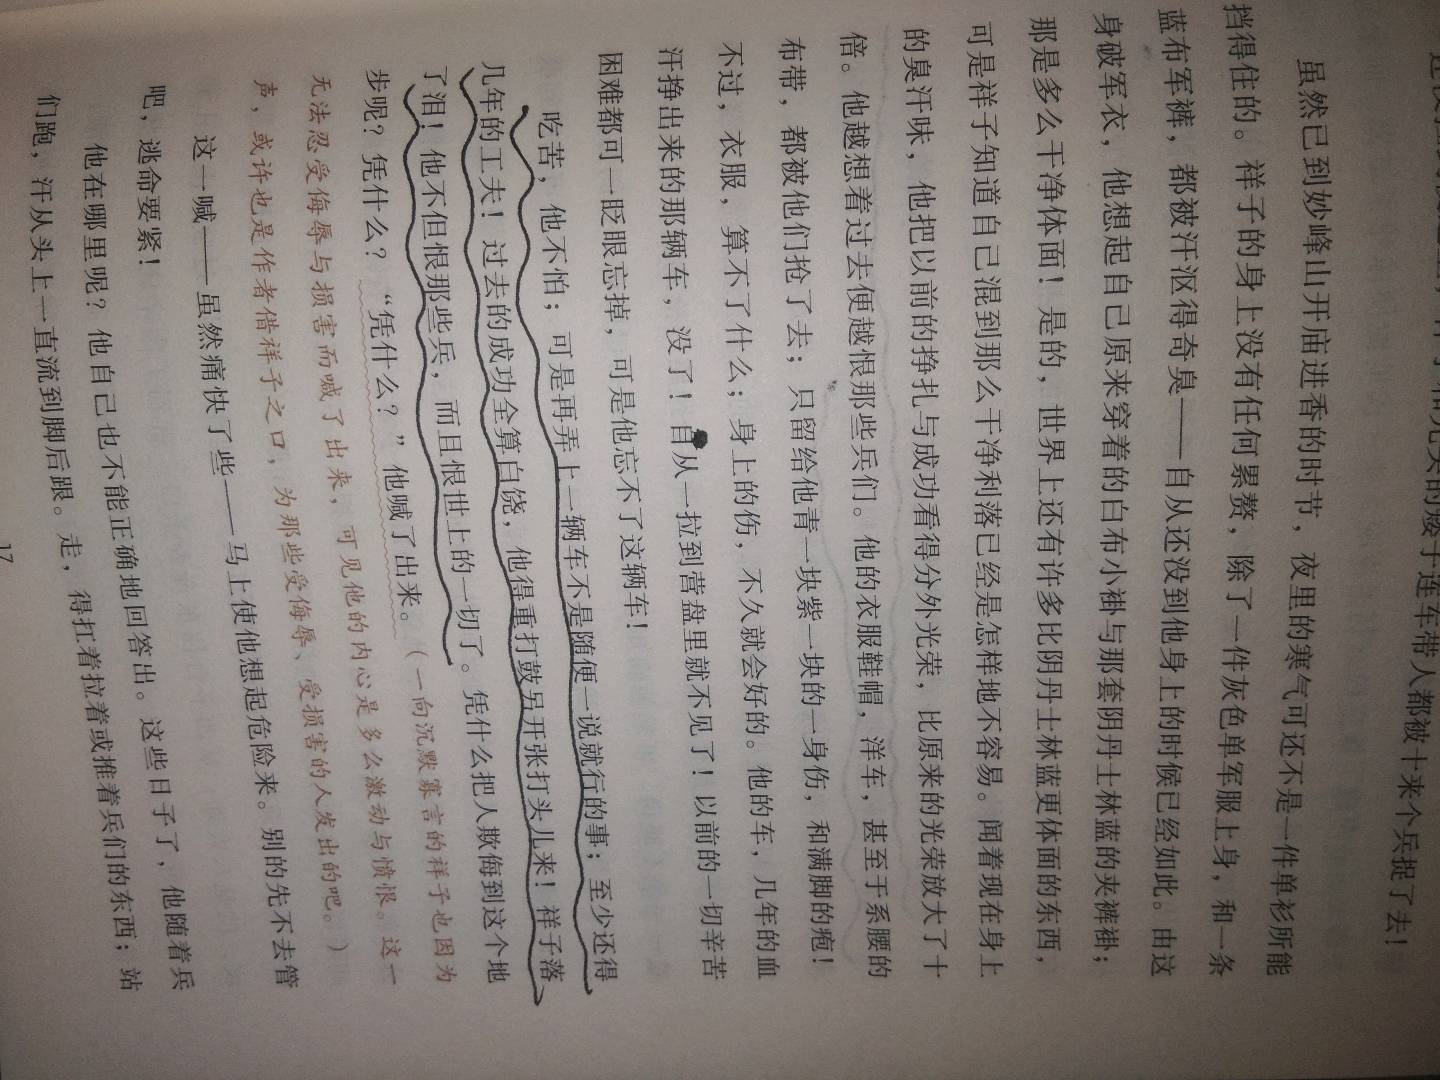 人都被十来个兵捉了去！
虽然已到妙峰山开庙进香的时节，夜里的寒气可还不是一件单衫所能
挡得住的。祥子的身上没有任何累赘，除了一件灰色单军服上身，和一条
蓝布军裤，都被汗沤得奇臭——自从还没到他身上的时候已经如此。由这
身破军衣，他想起自己原来穿着的白布小褂与那套阴丹士林蓝的夹裤褂；
那是多么干净体面！是的，世界上还有许多比阴丹士林蓝更体面的东西，
可是祥子知道自己混到那么干净利落已经是怎样地不容易。闻着现在身上
的臭汗味，他把以前的挣扎与成功看得分外光荣，比原来的光荣放大了十
倍。他越想着过去便越恨那些兵们。他的衣服鞋帽，洋车，甚至于系腰的
布带，都被他们抢了去；只留给他青一块紫一块的一身伤，和满脚的疱！
不过，衣服，算不了什么；身上的伤，不久就会好的。他的车，几年的血
汗挣出来的那辆车，没了！自从一拉到营盘里就不见了！以前的一切辛苦
困难都可一眨眼忘掉，可是他忘不了这辆车！
吃苦，他不怕；可是再弄上一辆车不是随便一说就行的事；至少还得
几年的工夫！过去的成功全算白饶，他得重打鼓另开张打头儿来！祥子落
了泪！他不但恨那些兵，而且恨世上的一切了。凭什么把人欺侮到这个地
步呢？凭什么？“凭什么？”他喊了出来。（一向沉默寡言的祥子也因为
无法忍受侮辱与损害而喊了出来，可见他的内心是多么激动与愤恨。这一
声，或许也是作者借祥子之口，为那些受侮辱、受损害的人发出的吧。）
这一喊——虽然痛快了些——马上使他想起危险来。别的先不去管
吧，逃命要紧！
他在哪里呢？他自己也不能正确地回答出。这些日子了，他随着兵
们跑，汗从头上一直流到脚后跟。走，得扛着拉着或推着兵们的东西；站
17